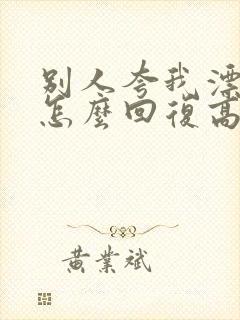 別人夸我漂
怎麼回復高
黃業斌